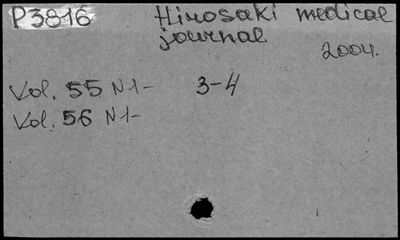 P3816 Hirosaki medical
journal
2004.
Vol. 55 N1- 3-4
Vol. 56 N1-